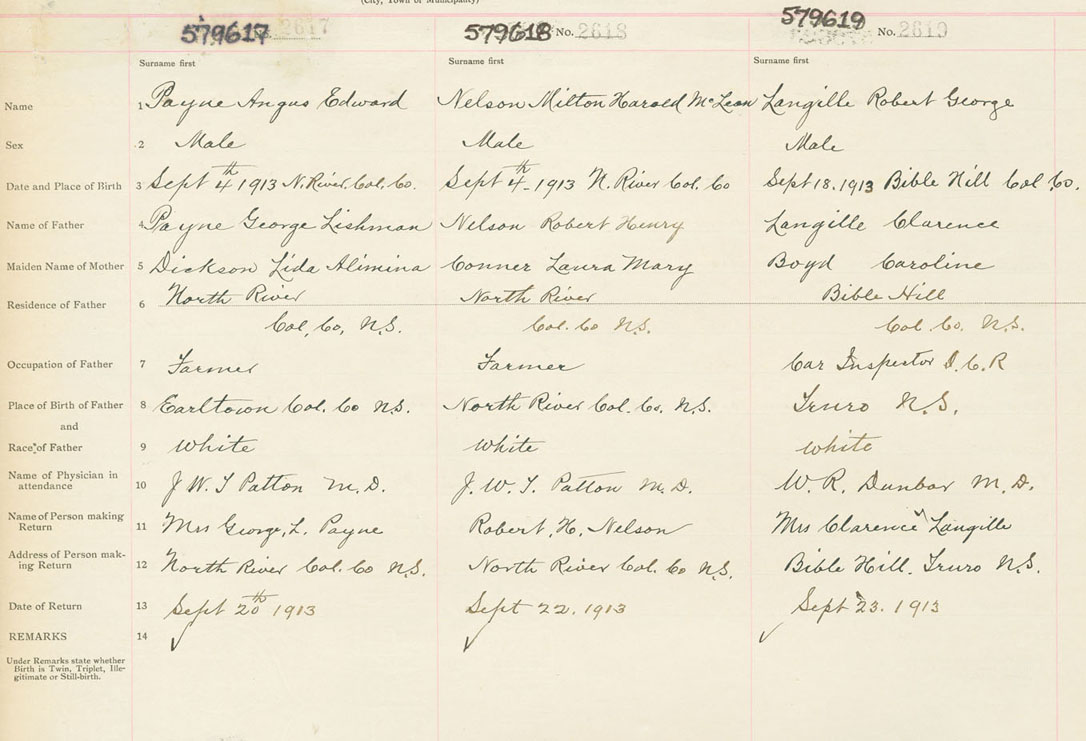 (City, Town or Municipality)
579617 2617 579618 No. 2618 579619 No. 2619
Surname first Surname first Surname first
Name 1 Payne Angus Edward Nelson Milton Harold McLean Langille Robert George
Sex 2 Male Male Male
Date and Place of Birth 3 Sept 4th 1913 N. River, Col. Co. Sept 4th 1913 N. River Col. Co Sept 18. 1913 Bible Hill Col Co.
Name of Father 4 Payne George Lishman Nelson Robert Henry Langille Clarence
Maiden Name of Mother 5 Dickson Lida Alimina Conner Laura Mary Boyd Caroline
Residence of Father 6 North River North River Bible Hill
Col. Co, N.S. Col. Co N.S. Col. Co. N.S.
Occupation of Father 7 Farmer Farmer Car Inspector I. C. R
Place of Birth of Father 8 Earltown Col. Co N.S. North River Col. Co. N.S. Truro N.S.
and
Race of Father 9 White White White
Name of Physician in
attendance 10 J. W. T Patton M. D. J. W. T. Patton M. D. W. R. Dunbar M. D.
Name of Person making
Return 11 Mrs George, L. Payne Robert, H. Nelson Mrs Clarence Langille
Address of Person mak-
ing Return 12 North River Col. Co N.S. North River Col. Co N.S. Bible Hill. Truro N.S.
Date of Return 13 Sept 20th 1913 Sept 22. 1913 Sept 23. 1913
REMARKS 14
Under Remarks state whether
Birth is Twin, Triplet, Ille-
gitimate or Still-birth.